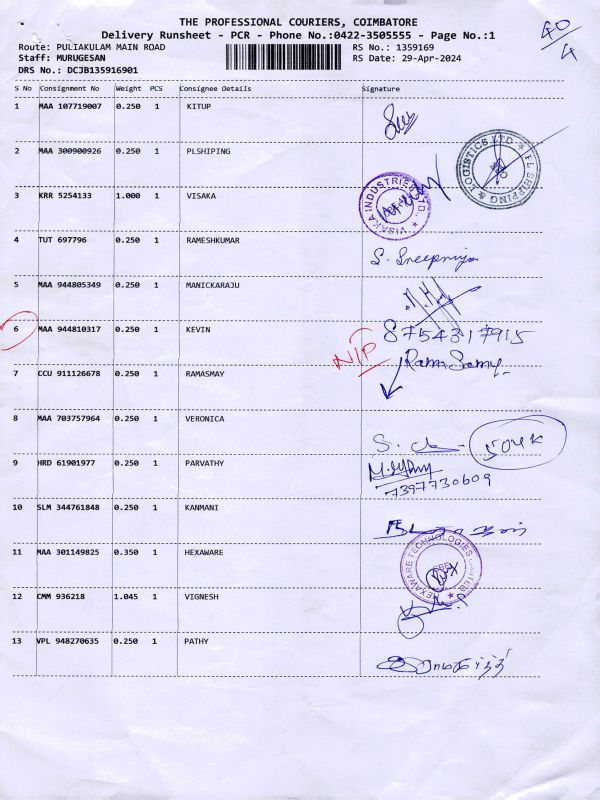 THE PROFESSIONAL COURIERS, COIMBATORE
Delivery Runsheet - PCR - Phone No.:0422-3505555 - Page No.:1
40/4
Route: PULIAKULAM MAIN ROAD RS No.: 1359169
Staff: MURUGESAN RS Date: 29-Apr-2024
DRS No.: DCJB135916901
S No Consignment No Weight PCS Consignee Details Signature
1 MAA 107719007 0.250 1 KITUP
2 MAA 300900926 0.250 1 PLSHIPING
PL SHIPPING & LOGISTICS LTD
3 KRR 5254133 1.000 1 VISAKA
VISAKA INDUSTRIES LTD.
4 TUT 697796 0.250 1 RAMESHKUMAR S. Sreepriya
5 MAA 944805349 0.250 1 MANICKARAJU
6 MAA 944810317 0.250 1 KEVIN N/P 8754317915
7 CCU 911126678 0.250 1 RAMASMAY Ram Samy
8 MAA 703757964 0.250 1 VERONICA
9 HRD 61901977 0.250 1 PARVATHY
7397730609
10 SLM 344761848 0.250 1 KANMANI
11 MAA 301149825 0.350 1 HEXAWARE
HEXAWARE TECHNOLOGIES LIMITED
12 CMM 936218 1.045 1 VIGNESH
13 VPL 948270635 0.250 1 PATHY